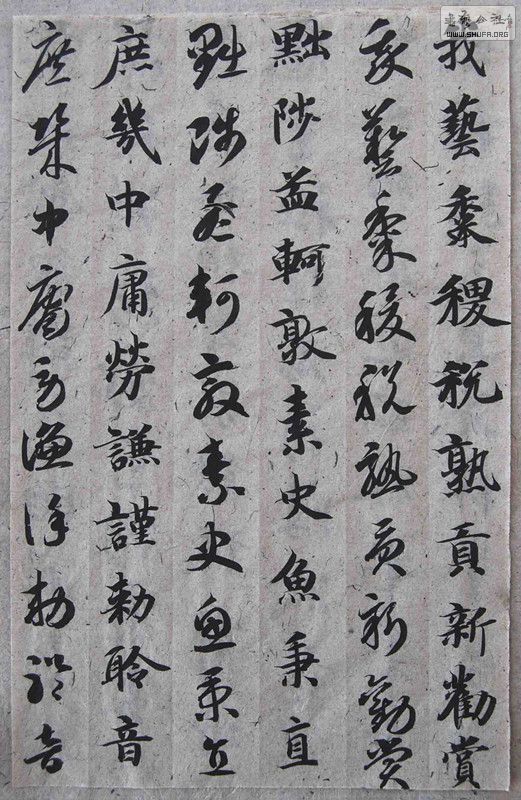 WWW.SHUFA.ORG
我藝黍稷稅熟貢新勸賞
我藝黍稷稅熟貢新勸賞
黜陟孟軻敦素史魚秉直
黜陟孟軻敦素史魚秉直
庶幾中庸勞謙謹勅聆音
庶幾中庸勞謙謹勅聆音